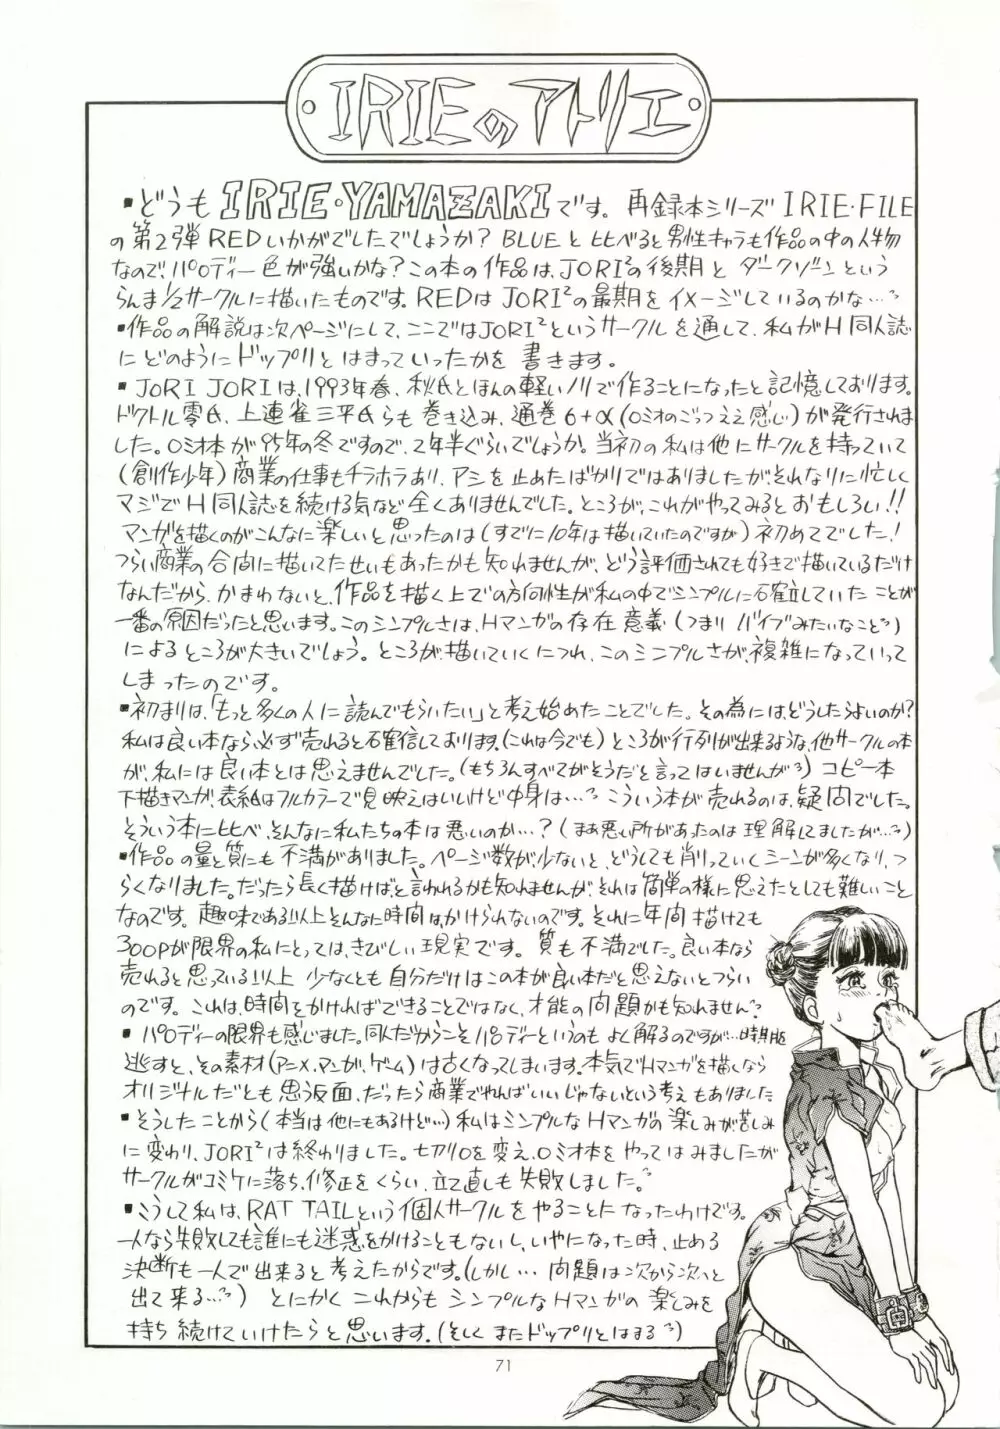 IRIEのアトリエ
・どうもIRIE・YAMAZAKIです。再録本シリーズIRIE・FILE
の第2弾REDいかがでしたでしょうか?BLUEと比べると男性キャラも作品の中の人物
なので、パロディー色が強いかな?この本の作品は、JORI²の後期とダークゾーンという
らんま1/2サークルに描いたものです。REDはJORI²の最期をイメージしているのかな…
・作品の解説は次ページにして、ここではJORI²というサークルを通して、私がH同人誌
にどのようにドップリとはまっていったかを書きます。
・JORI JORIは、1993年春、秋氏とほんの軽いノリで作ることになったと記憶しております。
ドクトル零氏、上連雀三平氏らも巻き込み、通巻6+α(ロミオのごっつええ感じ)が発行されま
した。ロミオ本が95年の冬ですので、2年半ぐらいでしょうか。当初の私は他にサークルを持っていて
(創作少年)商業の仕事もチラホラあり、アシを止めたばかりではありましたが、それなりに忙しく
マジでH同人誌を続ける気など全くありませんでした。ところが、これがやってみるとおもしろい!!
マンガを描くのがこんなに楽しいと思ったのは(すでに10年は描いていたのですが)初めてでした!
つらい商業の合間に描いてたせいもあったかも知れませんが、どう評価されても好きで描いているだけ
なんだから、かまわないと、作品を描く上での方向性が私の中でシンプルに確立していたことが
一番の原因だったと思います。このシンプルさは、Hマンガの存在意義(つまりバイブみたいなこと)
によるところが大きいでしょう。ところが、描いていくにつれ、このシンプルさが、複雑になっていって
しまったのです。
・初まりは、「もっと多くの人に読んでもらいたい」と考え始めたことでした。その為には、どうしたらよいのか?
私は良い本なら必ず売れると確信しております。(これは今でも)ところが行列が出来るような、他サークルの本
が、私には良い本とは思えませんでした。(もちろんすべてがそうだと言ってはいませんが)コピー本
下描きマンガ、表紙はフルカラーで見映えはいいけど中身は…こういう本が売れるのは、疑問でした。
そういう本に比べ、そんなに私たちの本は悪いのか…?(まぁ悪い所があったのは理解してましたが…)
・作品の量と質にも不満がありました。ページ数が、少ないと、どうしても削っていくシーンが多くなり、つ
らくなりました。だったら長く描けば、と言われるかも知れませんが、それは簡単の様に思えたとしても難しいこと
なのです。趣味である以上そんなに時間は、かけられないのです。それに年間描けても
300Pが限界の私にとっては、きびしい現実です。質も不満でした。良い本なら
売れると思っている以上少なくとも自分だけはこの本が良い本だと思えないとつらい
のです。これは、時間をかければできることではなく、才能の問題かも知れません?
・パロディーの限界も感じました。同人だからこそパロディーというのもよく解るのですが…時期
逃すと、その素材(アニメ、マンガ、ゲーム)は古くなってしまいます。本気でHマンガを描くなら
オリジナルだとも思う反面、だったら商業でやればいいじゃないという考えもありました
・そうしたことから(本当は他にもあるけど…)私はシンプルなHマンガの楽しみが苦しみ
に変わり、JORI²は終わりました。七刀りOを変え、ロミオ本をやってはみましたが
サークルがコミケに落ち、修正をくらい、立て直しも失敗しました。
・こうして私は、RAT TAILという個人サークルをやることになったわけです。
一人なら失敗しても誰にも迷惑をかけることもないし、いやになった時、止める
決断も一人で出来ると考えたからです。(しかし…問題は次から次へと
出て来る…)とにかくこれからもシンプルなHマンガの楽しみを
持ち続けていけたらと思います。(そしてまたドップリとはまる)
71